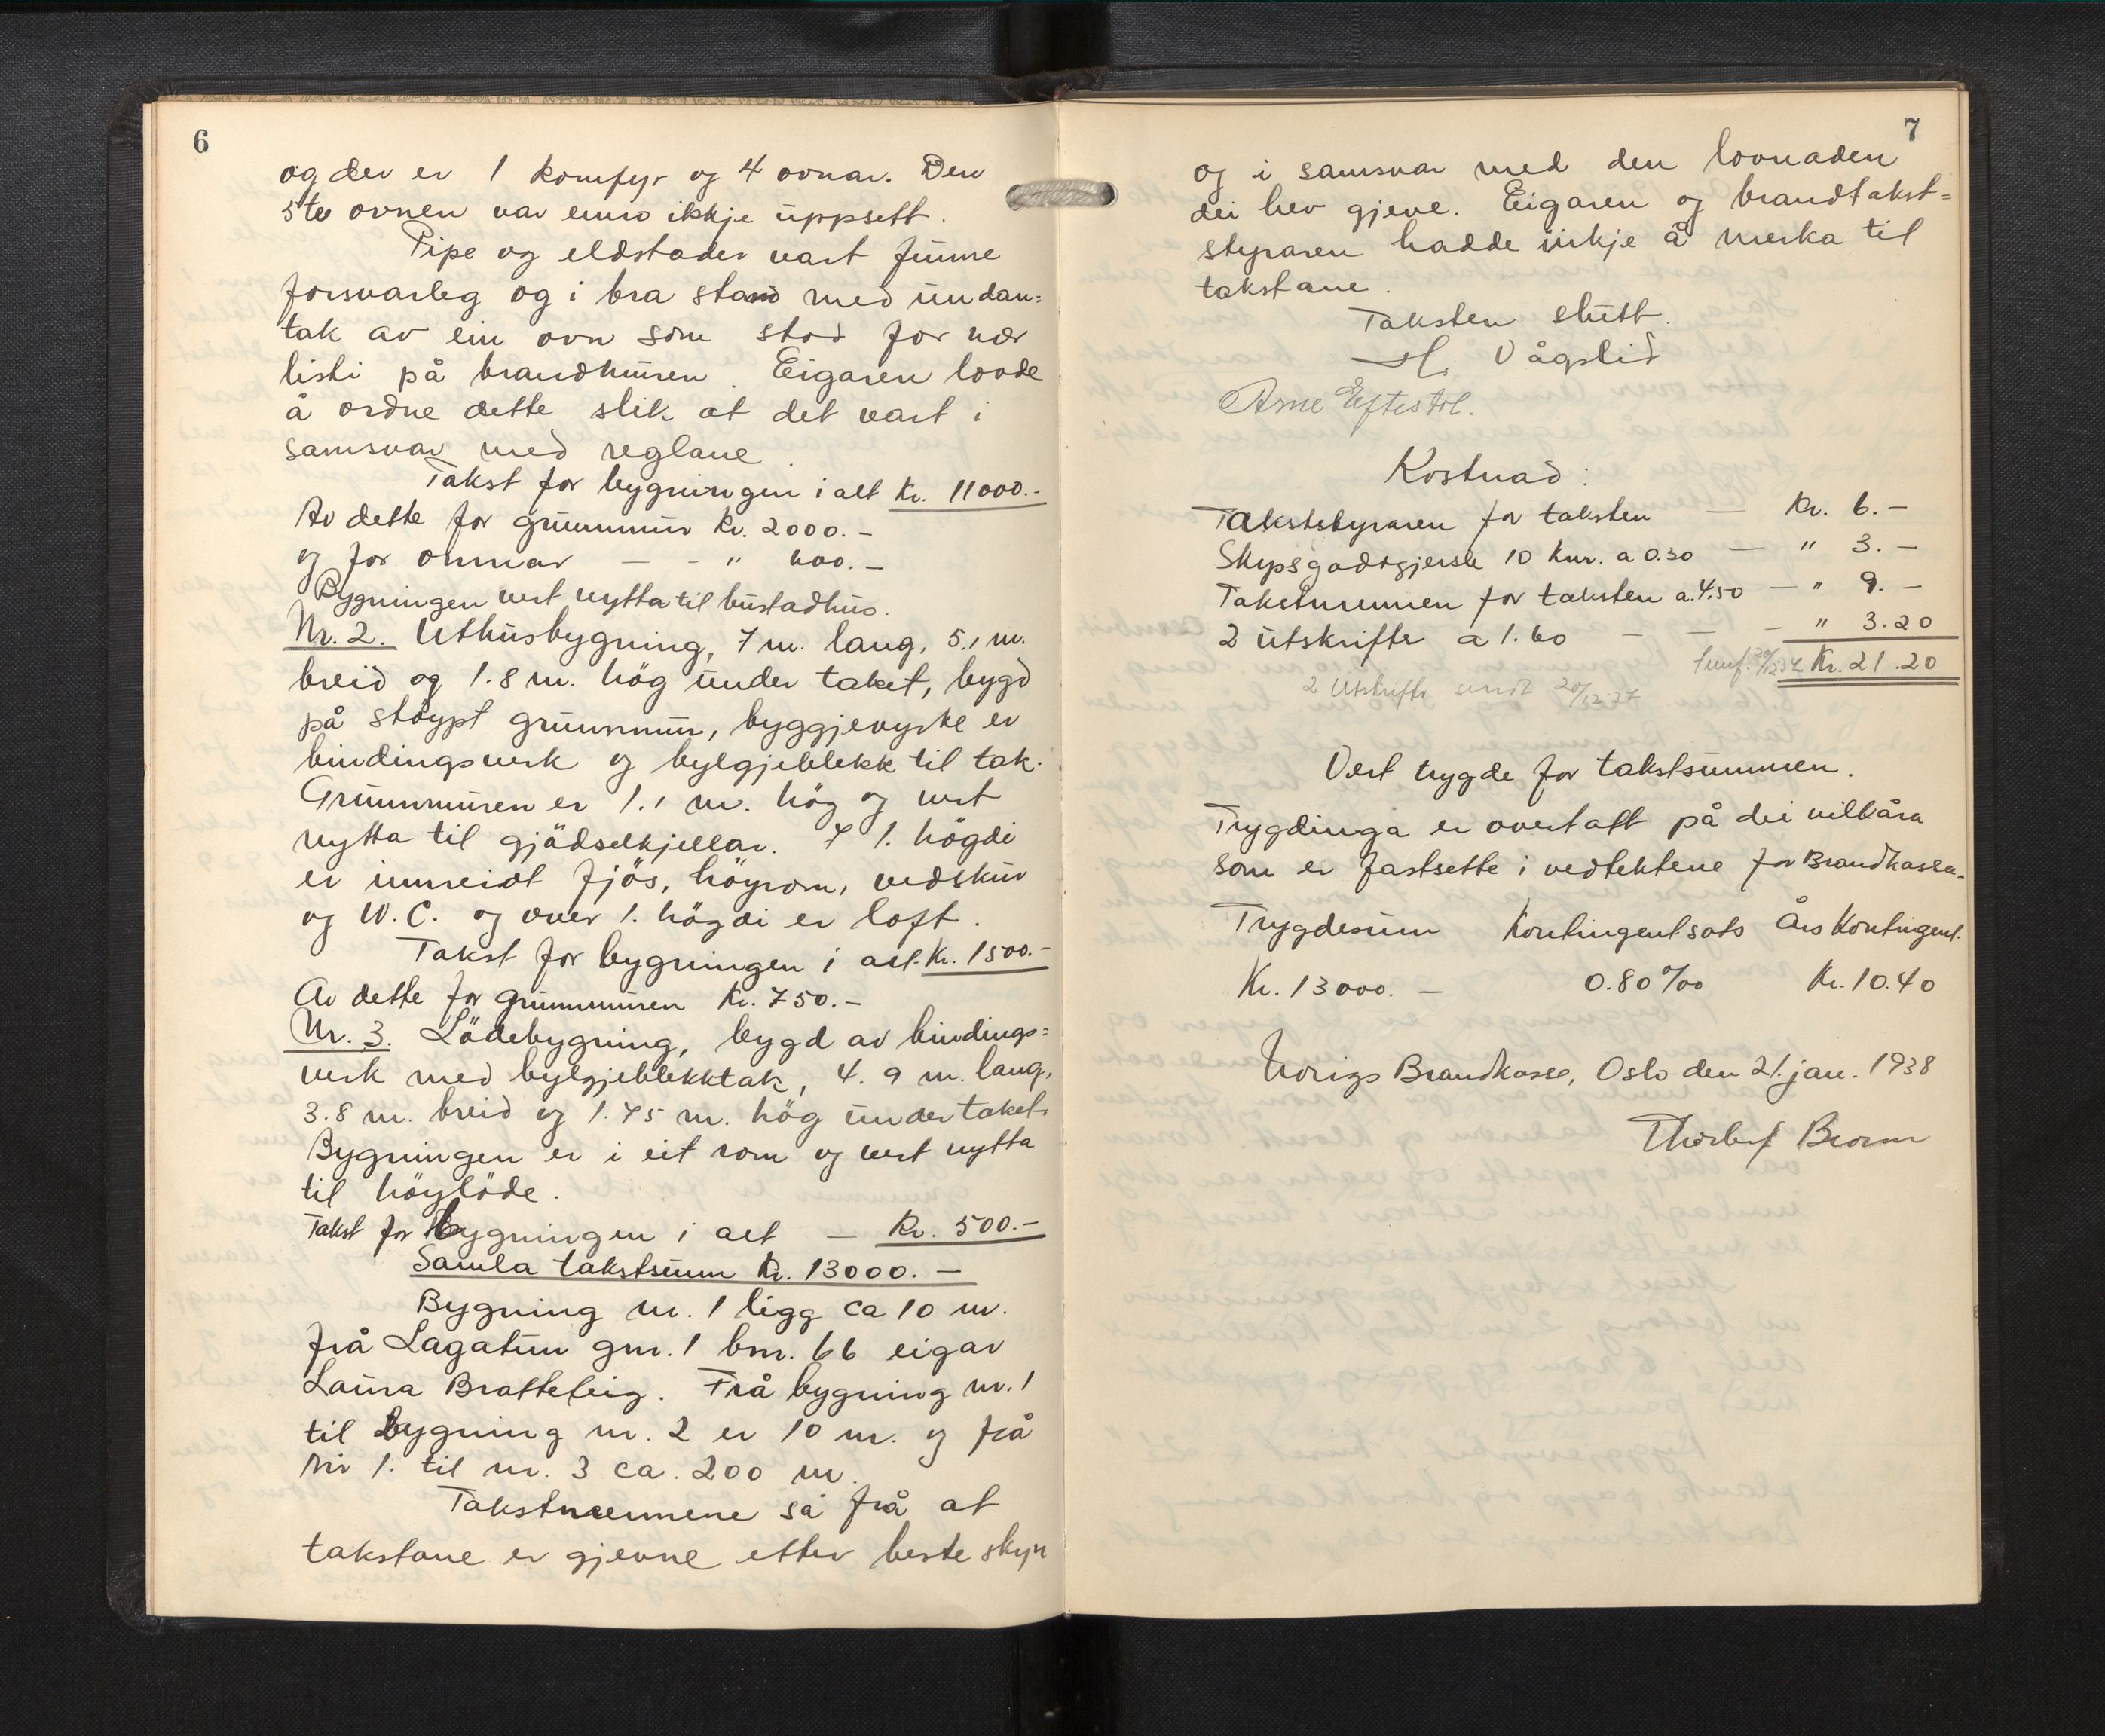 6
og der er 1 komfyr og 4 ovnar. Den
5te ovnen var enno ikkje uppsett.
Pipe og eldstader vart funne
forsvarleg og i bra stand med undan=
tak av ein ovn som stod for nær
listi på brandmuren. Eigaren lovde
å ordne dette slik at det vart i
samsvar med reglane.
Takst for bygningen i alt Kr. 11000.-
Av dette for grunnmur Kr. 2000.-
og for omnar — - " 600.-
Bygningen vert nytta til bustadhus.
Nr. 2. Uthusbygning, 7 m. lang, 5,1 m.
breid og 1.8 m. hög under taket, bygd
på stöypt grunnmur, byggjevyrke er
bindingsverk og bylgjeblekk til tak.
Grunnmuren er 1.1 m. hög og vert
nytta til gjödselkjellar. I 1. högdi
er innreidt fjös, höyrom, vedskur
og W.C. og over 1. högdi er loft.
Takst for bygningen i alt Kr. 1500.-
Av dette for grunnmuren Kr. 750.-
Nr. 3. Lödebygning, bygd av bindings=
verk med bylgjeblekktak, 4.9 m. lang,
3.8 m. breid og 1.75 m. hög under taket.
Bygningen er i eit rom og vert nytta
til höylöde.
Takst for bygningen i alt — Kr. 500.-
Samla takstsum Kr. 13000.-
Bygning nr. 1 ligg ca 10 m.
frå Lagatun gnr. 1 bnr. 66 eigar
Laura Bratteteig. Frå bygning nr. 1
til bygning nr. 2 er 10 m. og frå
nr 1. til nr. 3 ca. 200 m.
Takstnemnene sa frå at
takstane er gjevne etter beste skyn
7
og i samsvar med den lovnaden
dei hev gjeve. Eigaren og brandtakst=
styraren hadde inkje å merka til
takstane.
Taksten slutt.
H. Vågslid
Arne Eftestöl.
Kostnad:
Takststyraren for taksten — Kr. 6.-
Skyssgodtgjersle 10 km. a 0.30 — " 3.-
Takstnemnen for taksten a. 4.50 — " 9.-
2 utskrifter a 1.60 - — - " 3.20
Kr. 21.20
2 Utskrifter sendt 20/12 37
Vert trygde for takstsummen.
Trygdinga er overtatt på dei vilkåra
som er fastsette i vedtektene for Brandkassa.
Trygdesum Kontingentsats Års Kontingent.
Kr. 13000.- 0.80 ‰ Kr. 10.40
Norigs Brandkasse, Oslo den 21. jan. 1938